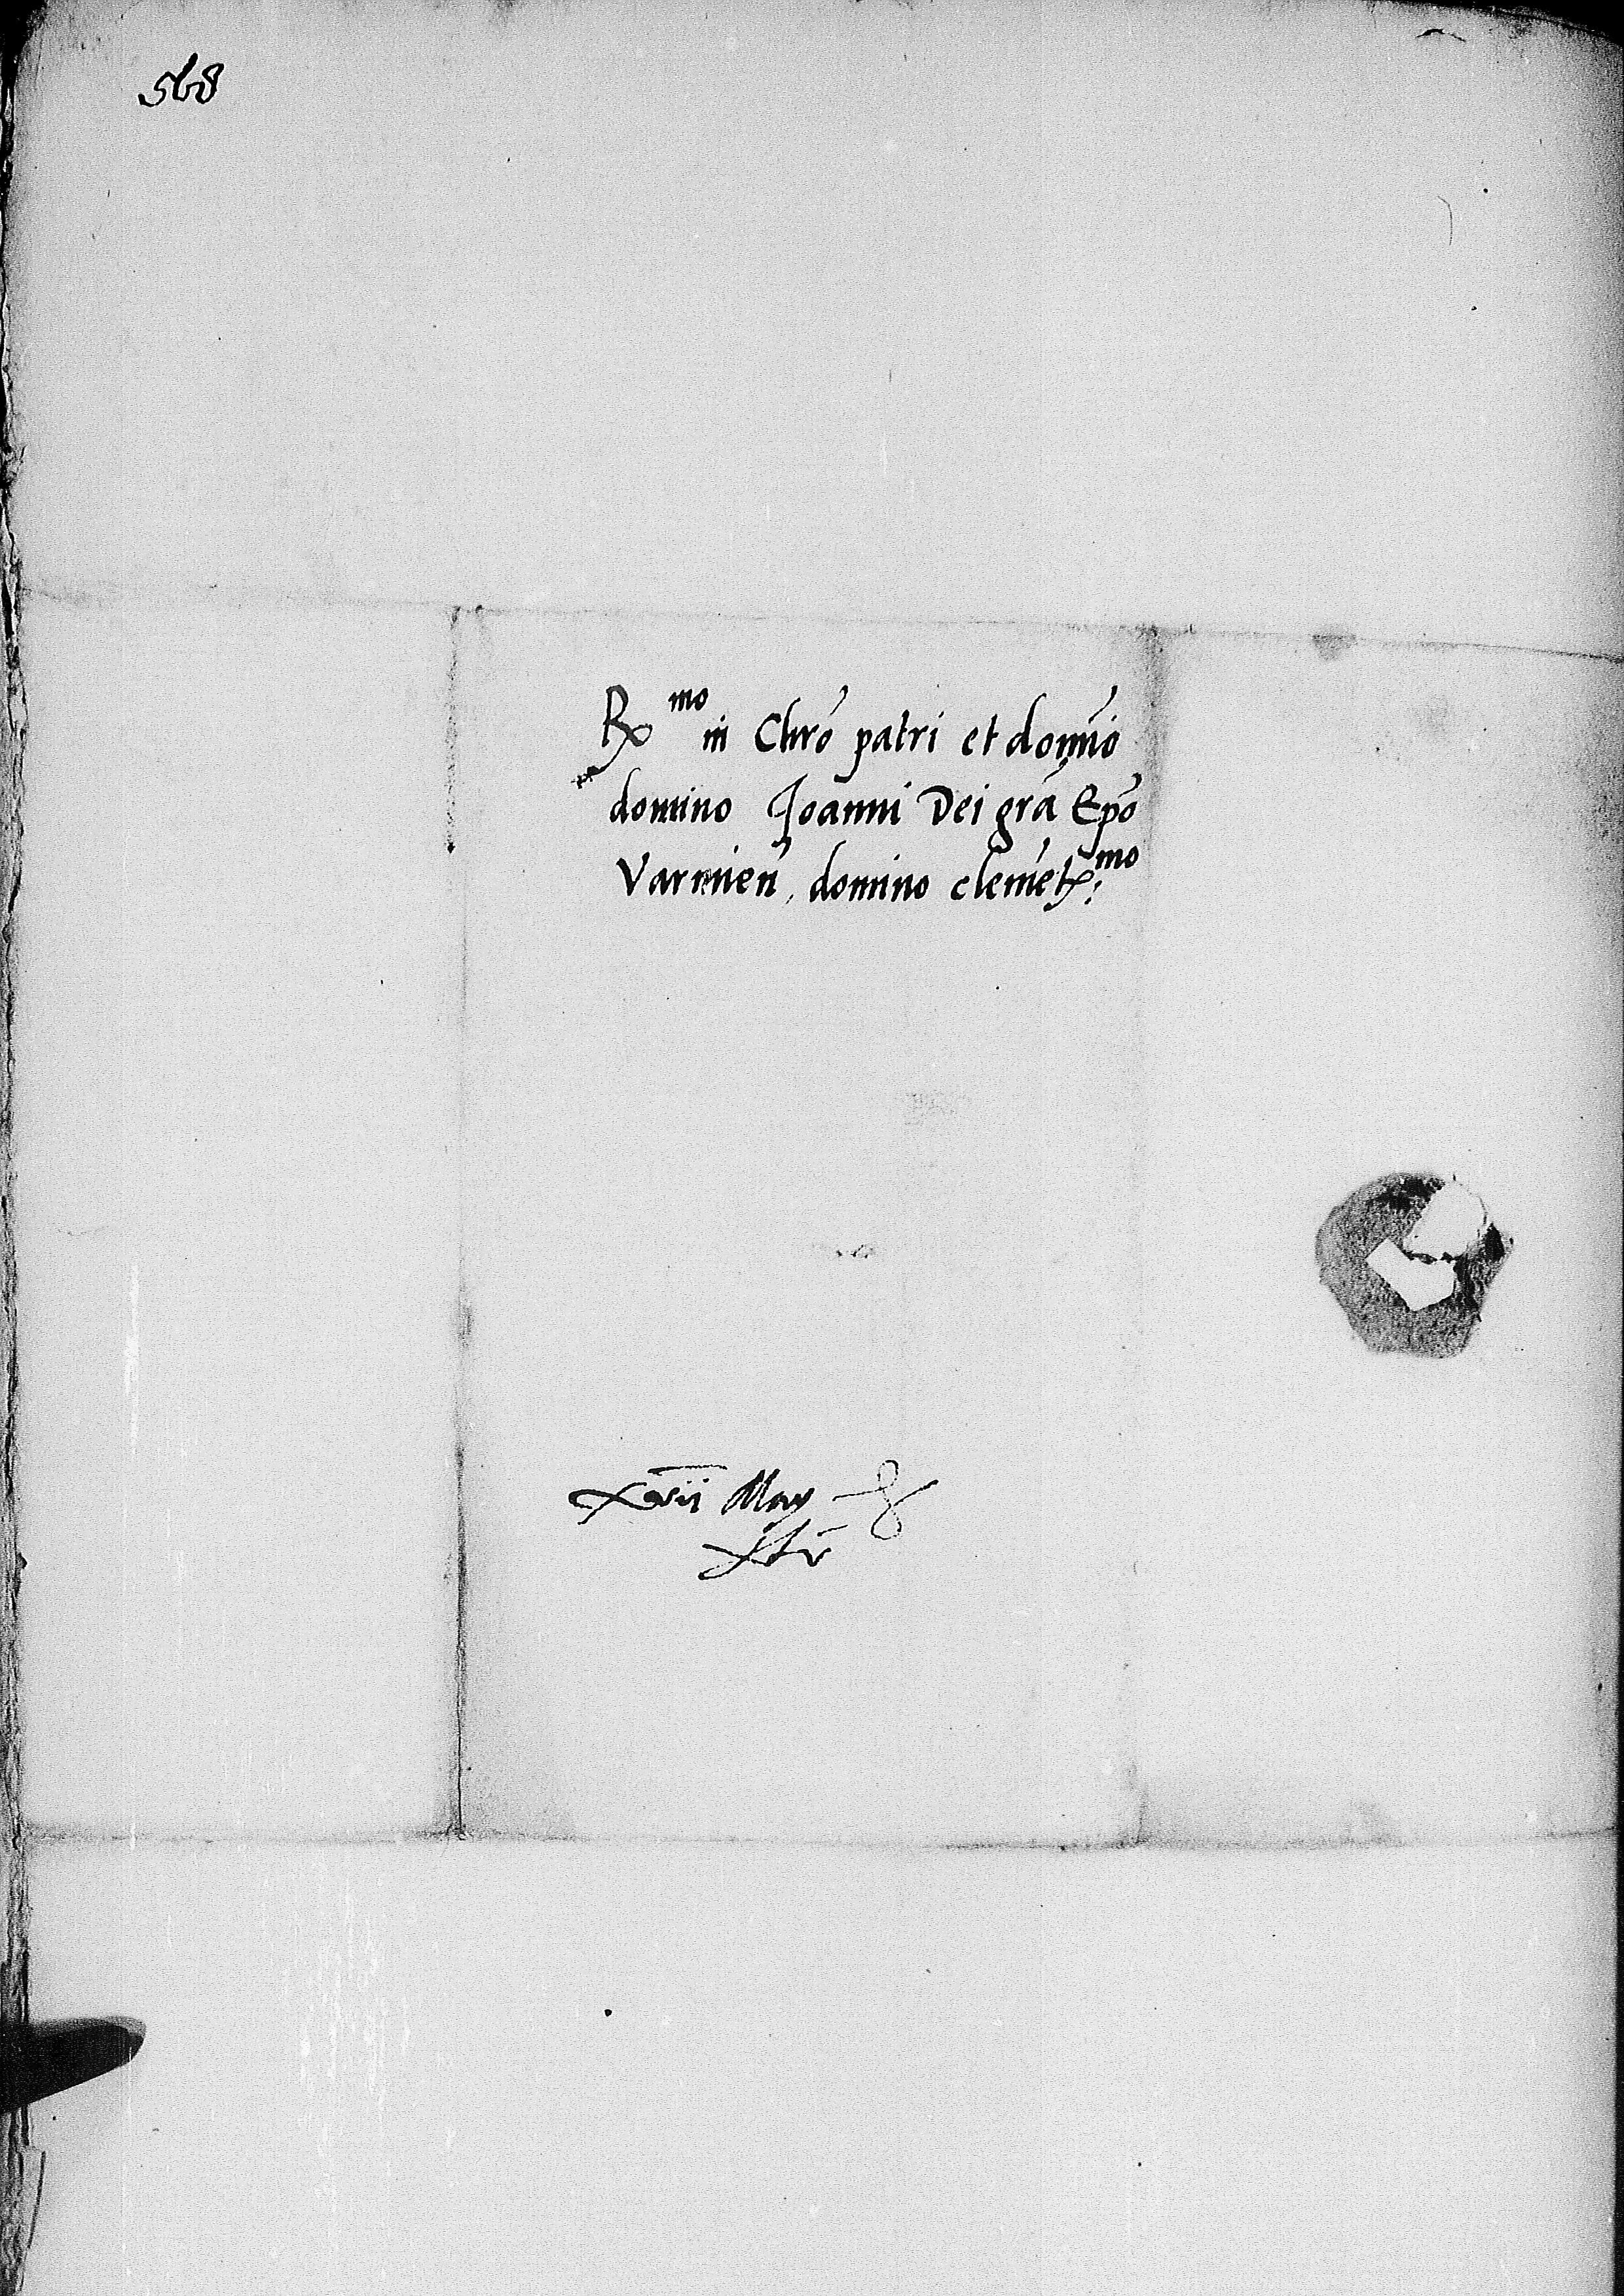 568
Rmo in Chro patri et domino
domino Joanni Dei gra Epo
Varmien, domino clemetmo:
xxvii May